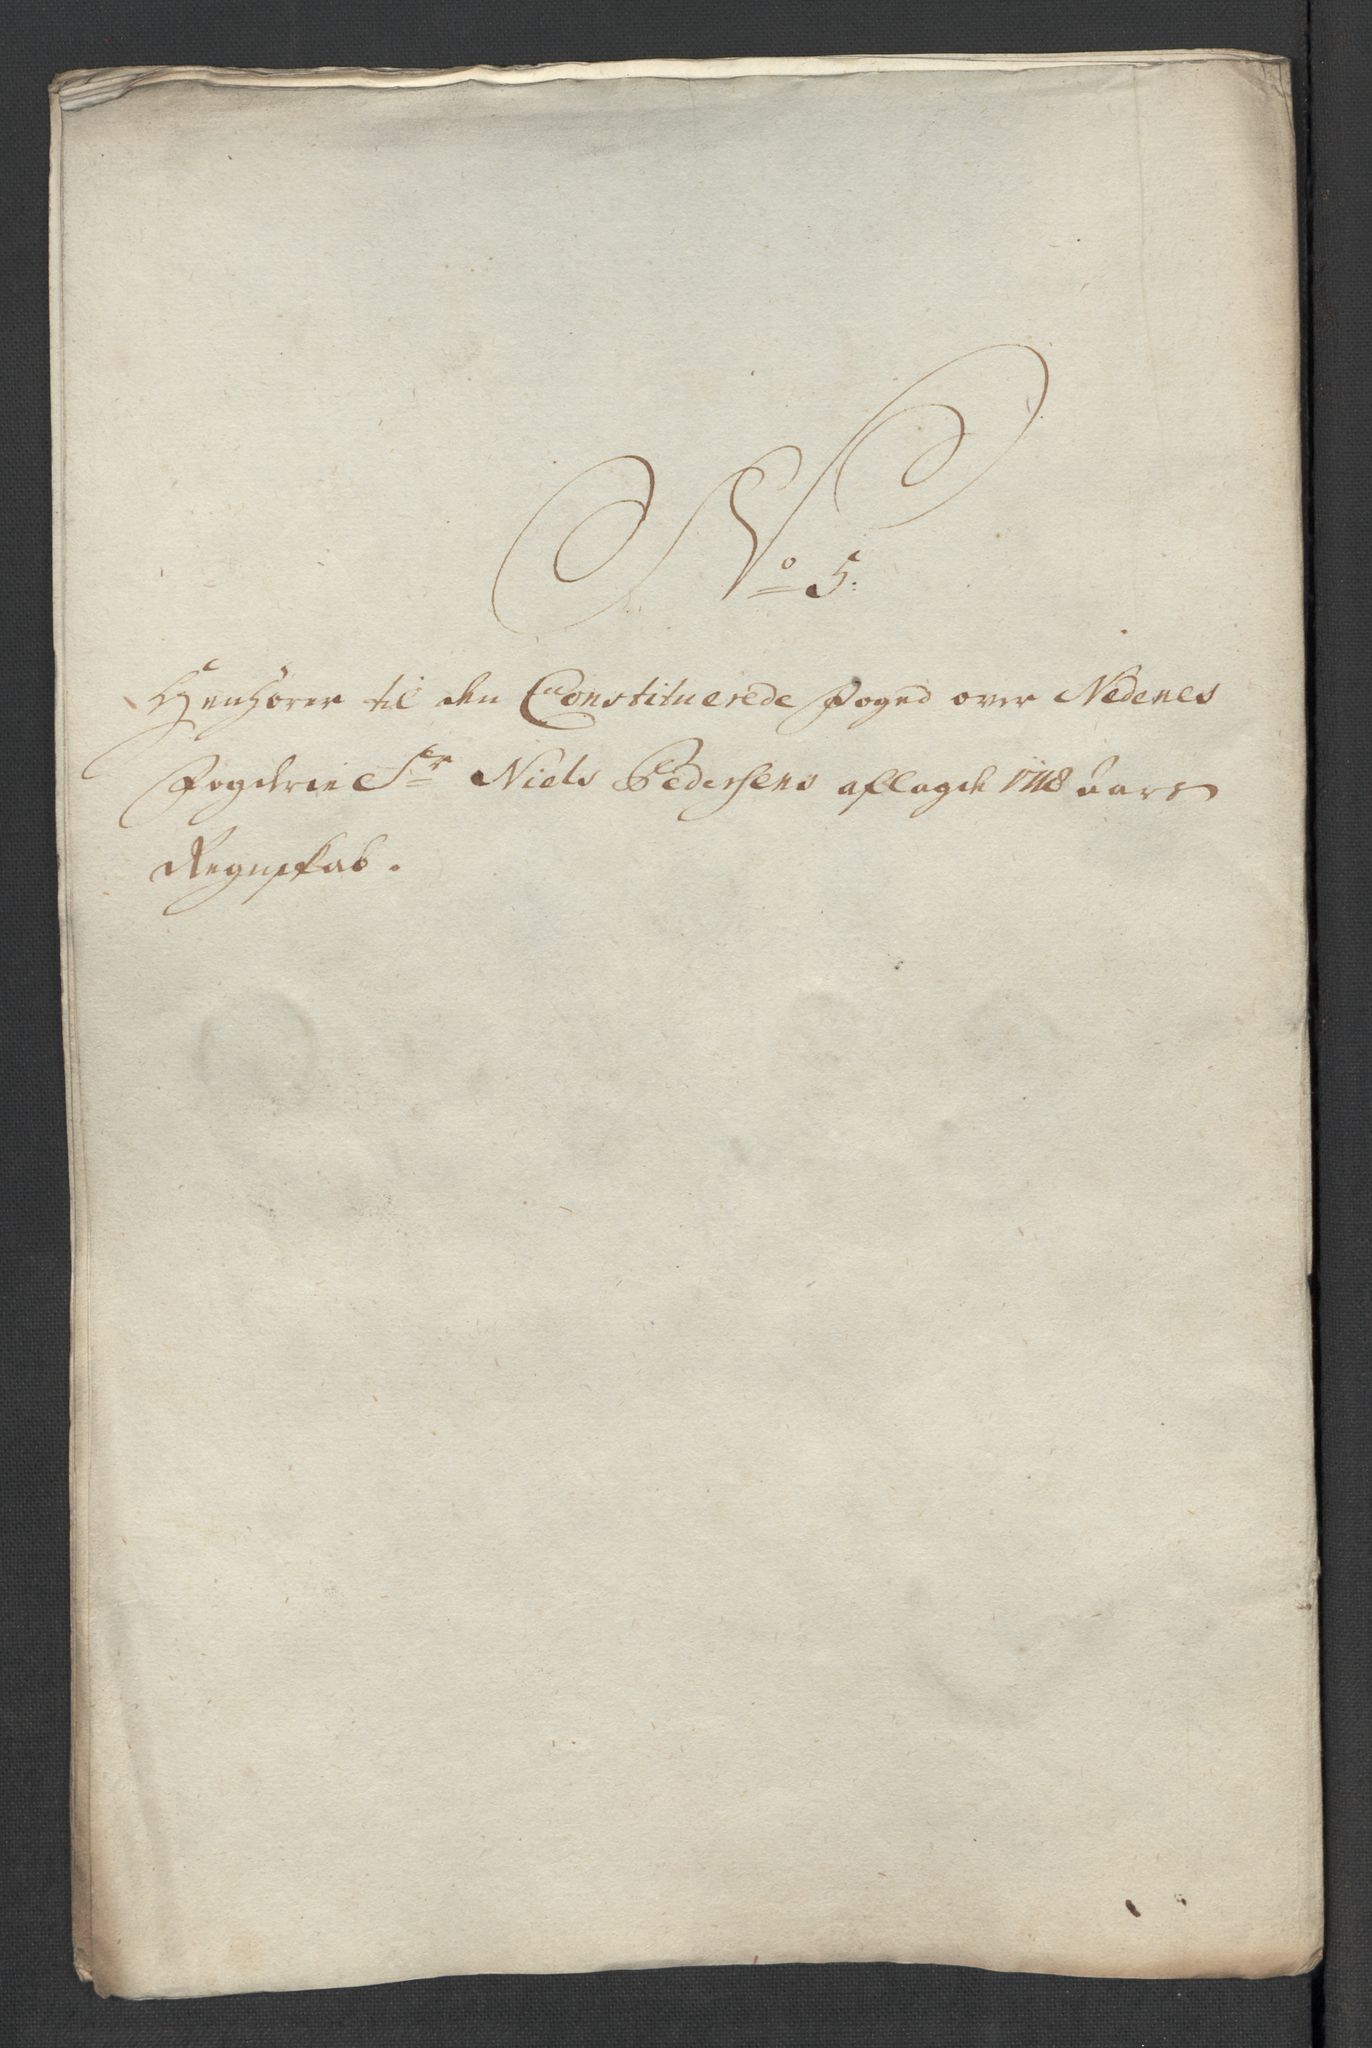 No 5.
Henhører til den Constituerede Foged over Nedenes
Fogderie Sr Niels Pedersens aflagde 1718 aars
Regnskab.